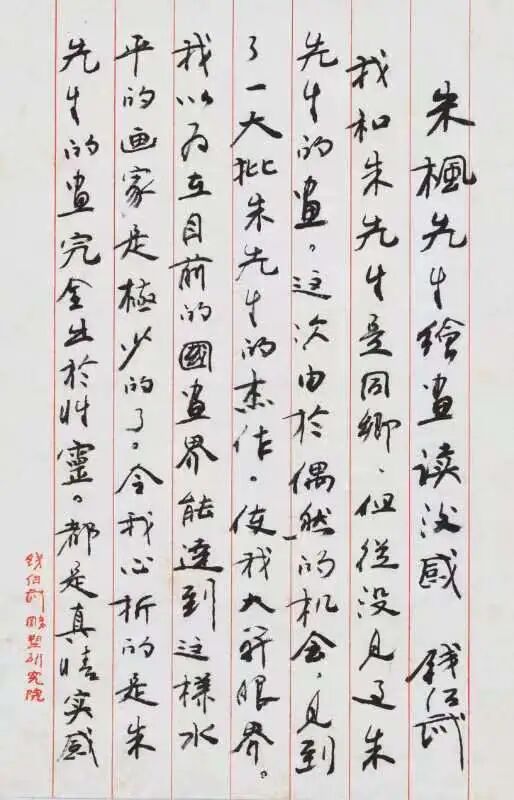 朱楓先生繪畫读没感 錢绍武
我和朱先生是同鄉、但從没見过朱
先生的畫。这次由於偶然的机会，见到
了一大批朱先生的杰作。使我大开眼界。
我以为在目前的國畫界能達到这様水
平的画家是極少的了。令我心折的是朱
先生的畫完全出於性靈。都是真情实感
钱绍武雕塑研究院